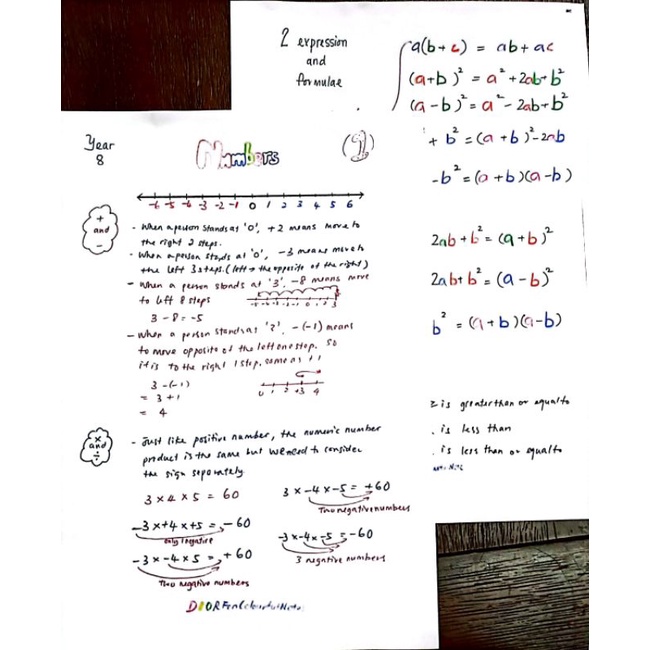 2 expression
and
formulae
a(b+c) = ab + ac
(a+b)² = a² + 2ab + b²
(a-b)² = a² - 2ab + b²
+ b² = (a + b)² - 2ab
- b² = (a + b)(a - b)
2ab + b² = (a + b)²
2ab + b² = (a - b)²
b² = (a + b)(a - b)
is greater than or equal to
is less than
is less than or equal to
Year
8
Numbers
(1)
-6 -5 -4 -3 -2 -1 0 1 2 3 4 5 6
+
and
-
- When a person stands as '0', +2 means move to
the right 2 steps.
- When a person stands at '0', -3 means move to
the left 3 steps. (left → the opposite of the right)
- When a person stands at '3', -8 means move
to left 8 steps
3 - 8 = -5
- When a person stands as '3', -(-1) means
to move opposite of the left one step. so
it is to the right 1 step, same as +1
3 - (-1)
= 3 + 1
= 4
0 1 2 +3 4
×
and
÷
- Just like positive number, the numeric number
product is the same but we need to consider
the sign seperately
3 × 4 × 5 = 60
3 × -4 × -5 = +60
Two negative numbers
-3 × +4 × +5 = -60
only 1 negative
-3 × -4 × -5 = -60
3 negative numbers
-3 × -4 × 5 = +60
Two negative numbers